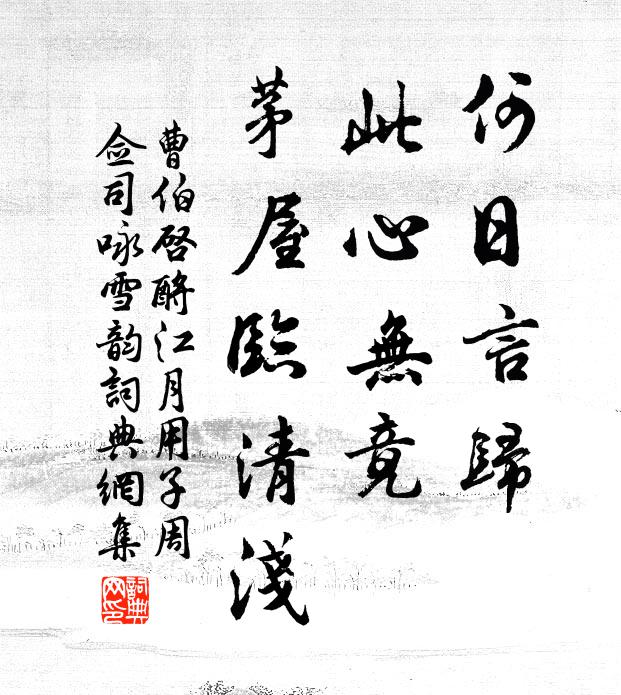 何日言歸
此心無竟
茅屋臨清淺
曹伯啓酹江月用子周
僉司咏雪韵詞典網集
詞典网印